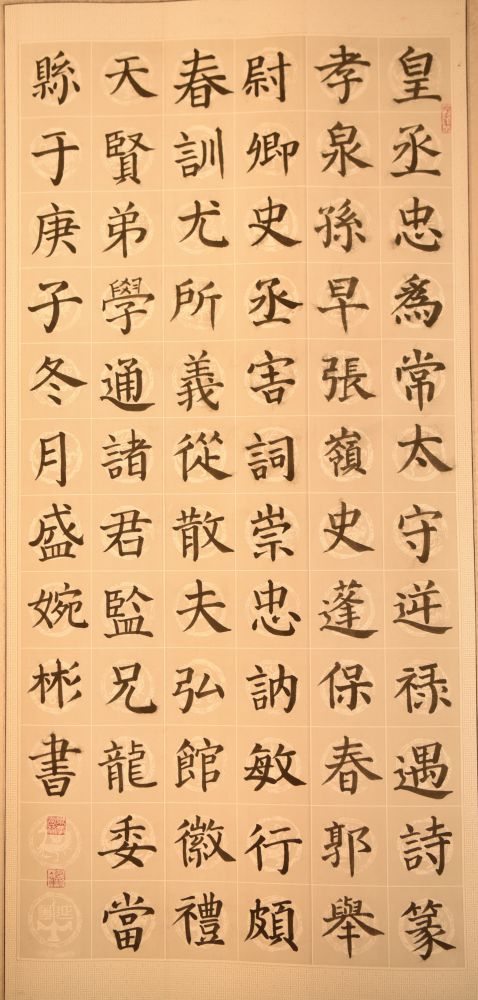 皇丞忠為常太守逆祿遇詩篆
孝泉孫早張嶺史蓬保春郭舉
尉卿史丞害詞崇忠訥敏行頗
春訓尤所義從散夫弘館徽禮
天賢弟學通諸君監兄龍委當
縣于庚子冬月盛婉彬書